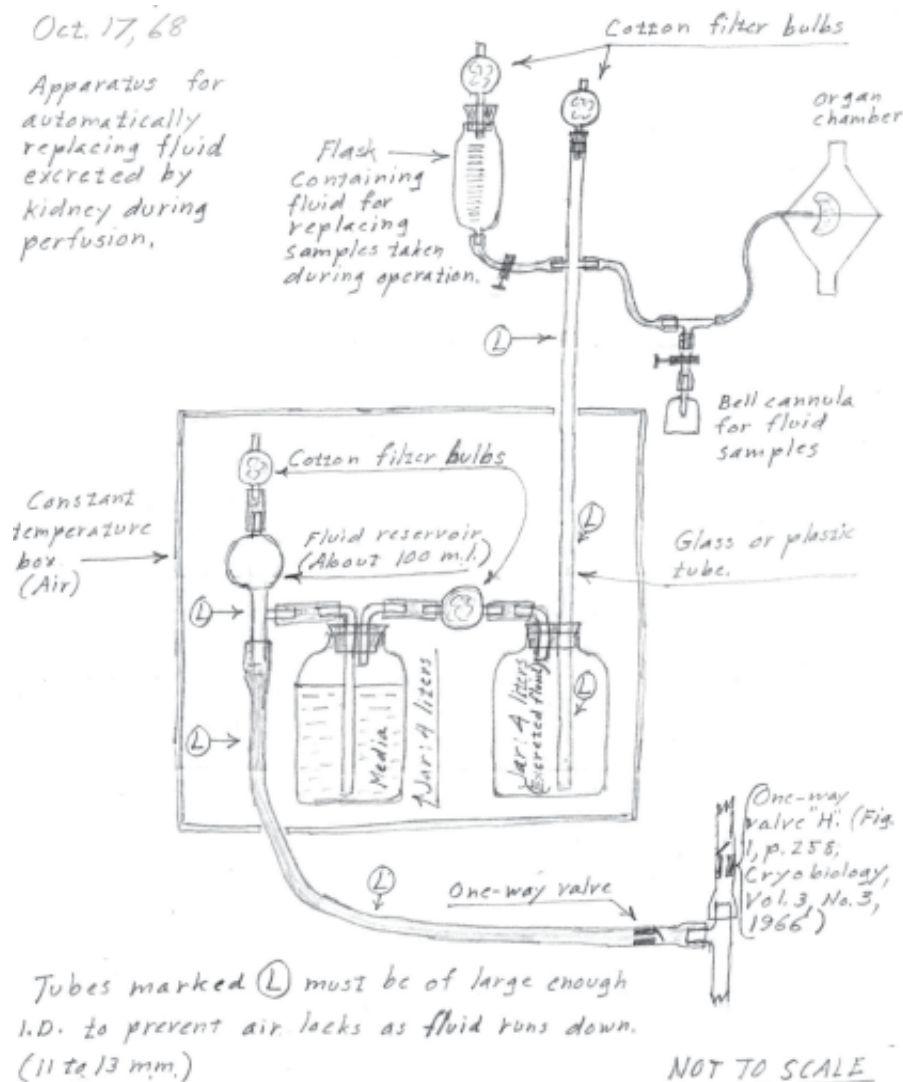 Oct. 17, 68
Apparatus for
automatically
replacing fluid
excreted by
kidney during
perfusion.
Cotton filter bulbs
Organ
chamber
Flask
Containing
fluid for
replacing
samples taken
during operation.
L
Bell cannula
for fluid
samples
Cotton filter bulbs
Constant
temperature
box
(Air)
Fluid reservoir
(About 100 m.l.)
L
Glass or plastic
tube.
L
L
L
Media
Jar: 4 liters
Jar: 4 liters
(Excreted fluid)
L
One-way valve
One-way
valve "H". (Fig.
1, p. 258,
Cryobiology,
Vol. 3, No. 3,
1966)
Tubes marked L must be of large enough
I.D. to prevent air locks as fluid runs down.
(11 to 13 mm.)
NOT TO SCALE